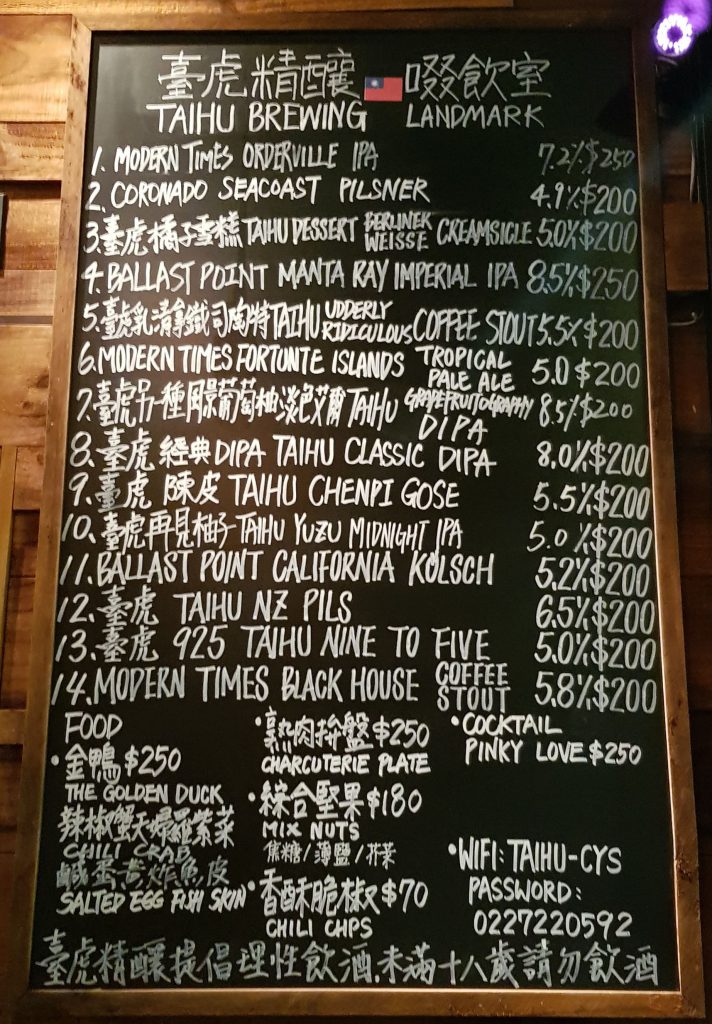 臺虎精釀 啜飲室
TAIHU BREWING LANDMARK
1. MODERN TIMES ORDERVILLE IPA 7.2% $250
2. CORONADO SEACOAST PILSNER 4.9% $200
3. 臺虎橘子雪糕 TAIHU DESSERT BERLINER WEISSE CREAMSICLE 5.0% $200
4. BALLAST POINT MANTA RAY IMPERIAL IPA 8.5% $250
5. 臺虎乳清拿鐵司陶特 TAIHU UDDERLY RIDICULOUS COFFEE STOUT 5.5% $200
6. MODERN TIMES FORTUNTE ISLANDS TROPICAL PALE ALE 5.0 $200
7. 臺虎另一種風景葡萄柚淡色艾爾 TAIHU GRAPEFRUITOGRAPHY DIPA 8.5% $200
8. 臺虎 經典DIPA TAIHU CLASSIC DIPA 8.0% $200
9. 臺虎 陳皮 TAIHU CHENPI GOSE 5.5% $200
10. 臺虎再見柚子 TAIHU YUZU MIDNIGHT IPA 5.0% $200
11. BALLAST POINT CALIFORNIA KÖLSCH 5.2% $200
12. 臺虎 TAIHU NZ PILS 6.5% $200
13. 臺虎 925 TAIHU NINE TO FIVE 5.0% $200
14. MODERN TIMES BLACK HOUSE COFFEE STOUT 5.8% $200
FOOD
• 金鴨 $250
THE GOLDEN DUCK
辣椒蟹天婦羅紫菜
CHILI CRAB
鹹蛋黃炸魚皮
SALTED EGG FISH SKIN
• 熟肉拚盤 $250
CHARCUTERIE PLATE
• 綜合堅果 $180
MIX NUTS
焦糖/薄鹽/芥茉
• 香酥脆椒 $70
CHILI CHPS
• COCKTAIL
PINKY LOVE $250
• WIFI: TAIHU-CYS
PASSWORD:
0227220592
臺虎精釀提倡理性飲酒.未滿十八歲請勿飲酒